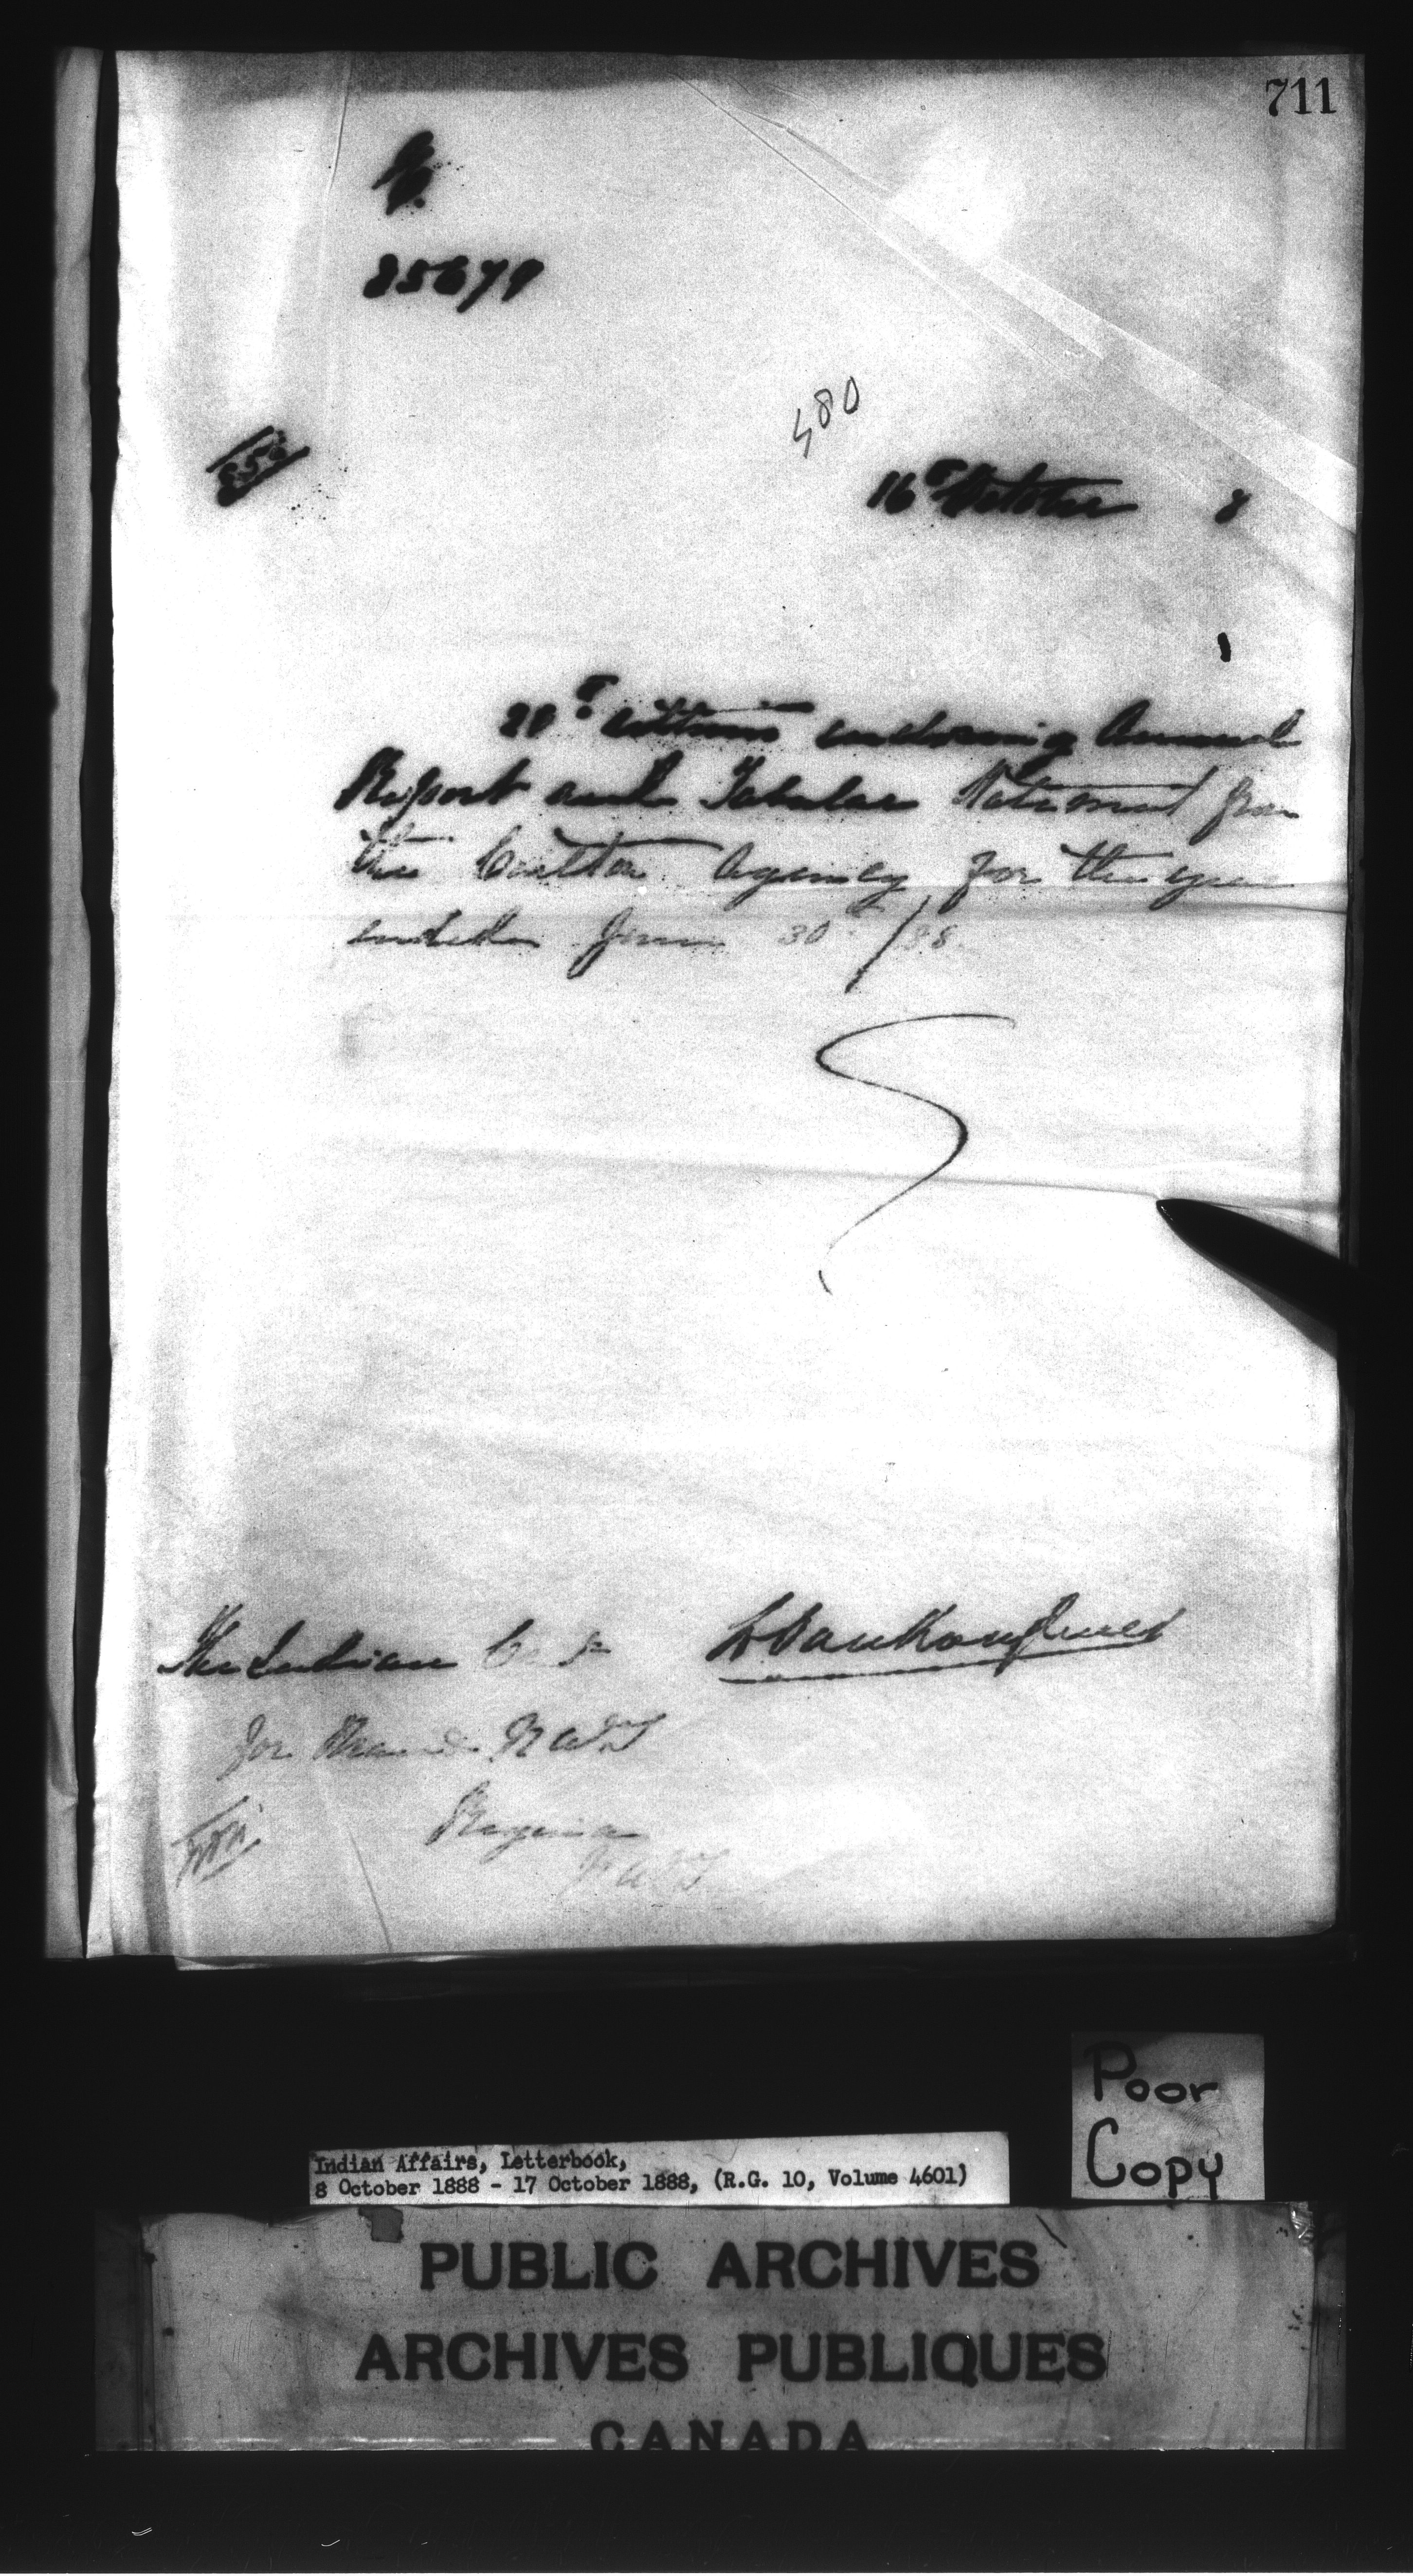 711
85679
480
16th October 8
28th ultimo enclosing Annual
Report and Tabular Statement from
the Carlton Agency for the year
ended June 30th /88.
The Indian
L Vankoughnet
for N.W.T
Regina
N.W.T
Poor
Copy
Indian Affairs, Letterbook,
8 October 1888 - 17 October 1888, (R.G. 10, Volume 4601)
PUBLIC ARCHIVES
ARCHIVES PUBLIQUES
CANADA